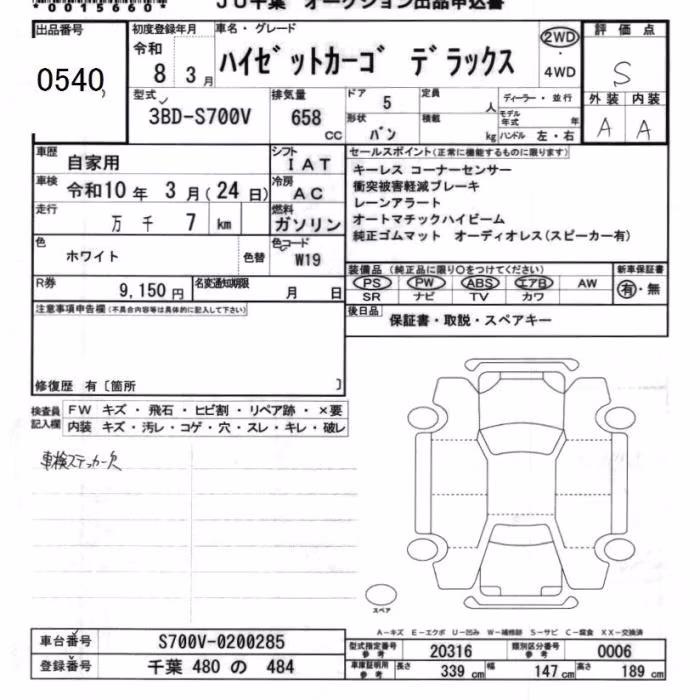 *00015660*
JU千葉 オークション出品申込書
出品番号
0540
初度登録年月
令和
8 3月
車名・グレード
ハイゼットカーゴ デラックス
2WD
・
4WD
評価点
S
型式
3BD-S700V
排気量
658
cc
ドア
5
定員
人
形状
バン
積載
kg
ディーラー・並行
モデル年式
年
ハンドル 左・右
外装 内装
A A
車歴
自家用
シフト
IAT
車検
令和10年 3月(24日)
冷房
AC
走行
万 千 7 km
燃料
ガソリン
色
ホワイト
色替
色コード
W19
R券
9,150円
名変通知期限
月 日
セールスポイント(正常に機能するものに限ります)
キーレス コーナーセンサー
衝突被害軽減ブレーキ
レーンアラート
オートマチックハイビーム
純正ゴムマット オーディオレス(スピーカー有)
装備品 (純正品に限り○をつけてください)
PS PW ABS エアB AW
SR ナビ TV カワ
新車保証書
有・無
後日品
保証書・取説・スペアキー
注意事項申告欄(不具合内容等は具体的に記入して下さい)
修復歴 有〔箇所 〕
検査員
記入欄
FW キズ・飛石・ヒビ割・リペア跡・×要
内装 キズ・汚レ・コゲ・穴・スレ・キレ・破レ
車検ステッカー欠
スペア
A-キズ E-エクボ U-凹み W-補修跡 S-サビ C-腐食 XX-交換済
車台番号
S700V-0200285
登録番号
千葉 480 の 484
型式指定番号
参考
20316
類別区分番号
参考
0006
車庫証明用
参考
長さ
339 cm
幅
147 cm
高さ
189 cm